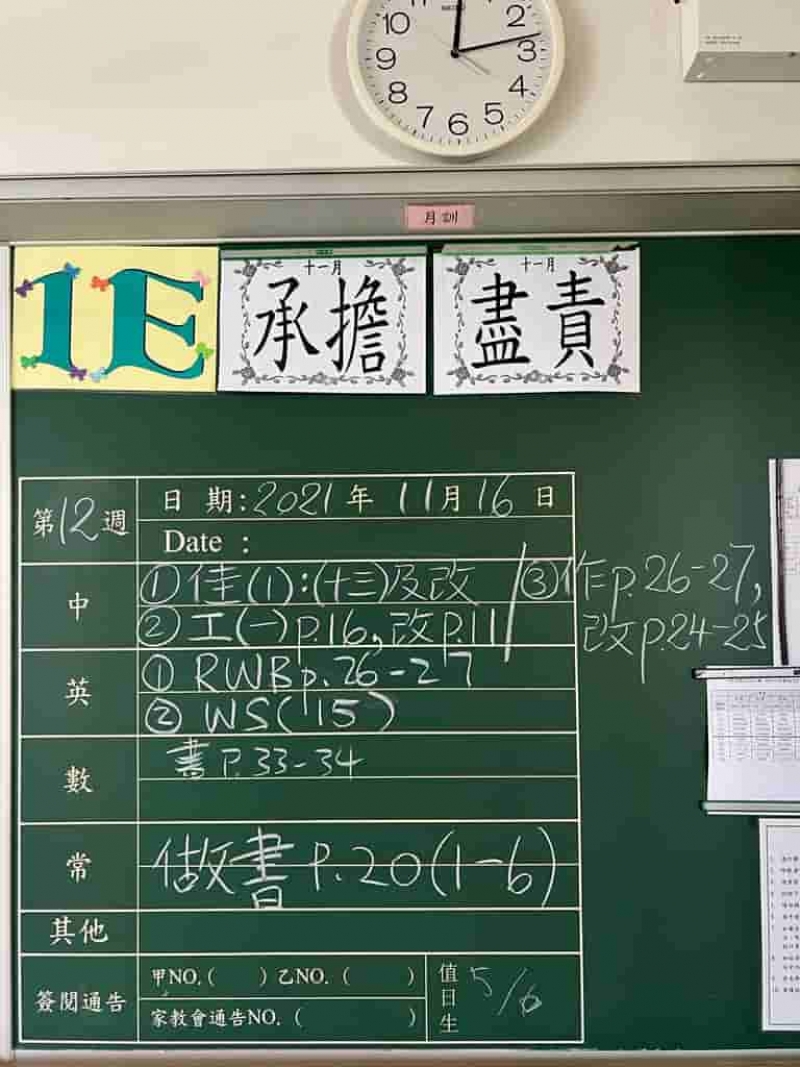 10
2
9
3
8
4
7
6
5
月訓
1E
十一月
承擔
十一月
盡責
第12週
日 期:2021年 11月16日
Date :
中
①佳(1):(十三)及改
③作p.26-27,
②工(一)p.16,改p.11
改p.24-25
英
① RWBp.26-27
② WS(15)
數
書P.33-34
常
做書 P.20(1-6)
其他
簽閱通告
甲NO.( )乙NO.( )
家教會通告NO.( )
值日生
5/6